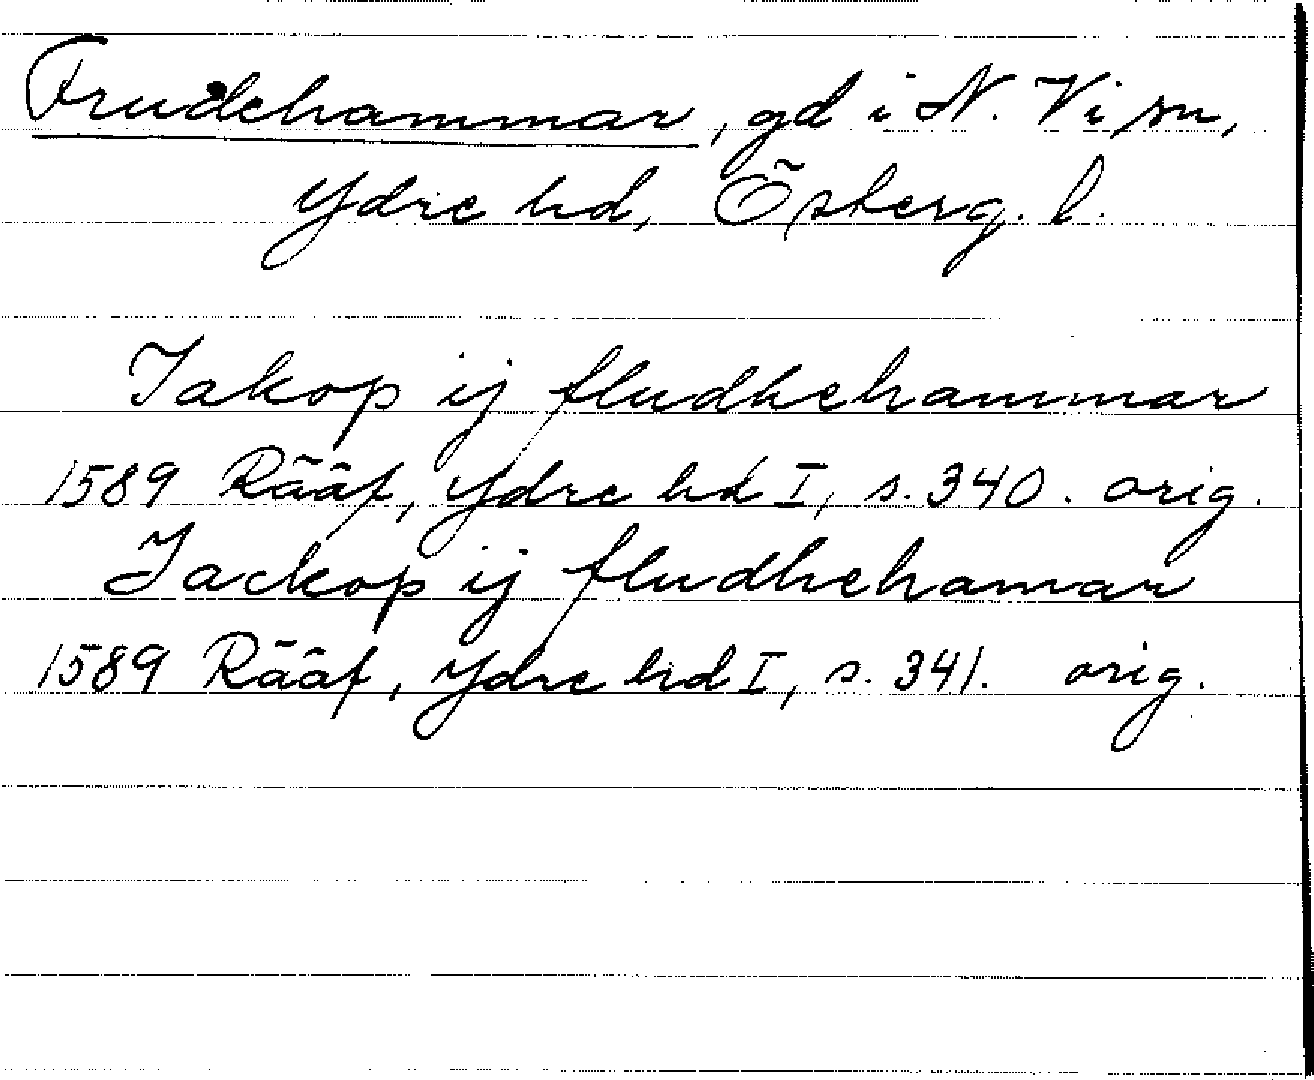 Frudehammar, gd i N. Vi sn,
Ydre hd, Österg. l.
Jakop ij fludhehammar
1589 Rääf, Ydre hd I, s. 340. orig.
Jackop ij fludhehamar
1589 Rääf, Ydre hd I, s. 341. orig.